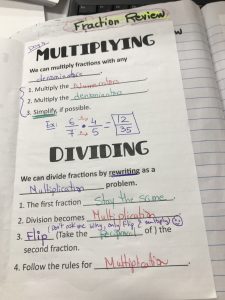 Fraction Review
MULTIPLYING
We can multiply fractions with any
denominators.
1. Multiply the numerators
2. Multiply the denominators
3. Simplify, if possible.
Ex: 6/7 · 4/5 = 12/35
DIVIDING
We can divide fractions by rewriting as a
Multiplication problem.
1. The first fraction Stay the same.
2. Division becomes Multiplication
(Don't ask me why, only flip & multiply)
3. Flip (Take the reciprocal of) the
second fraction.
4. Follow the rules for Multiplication.